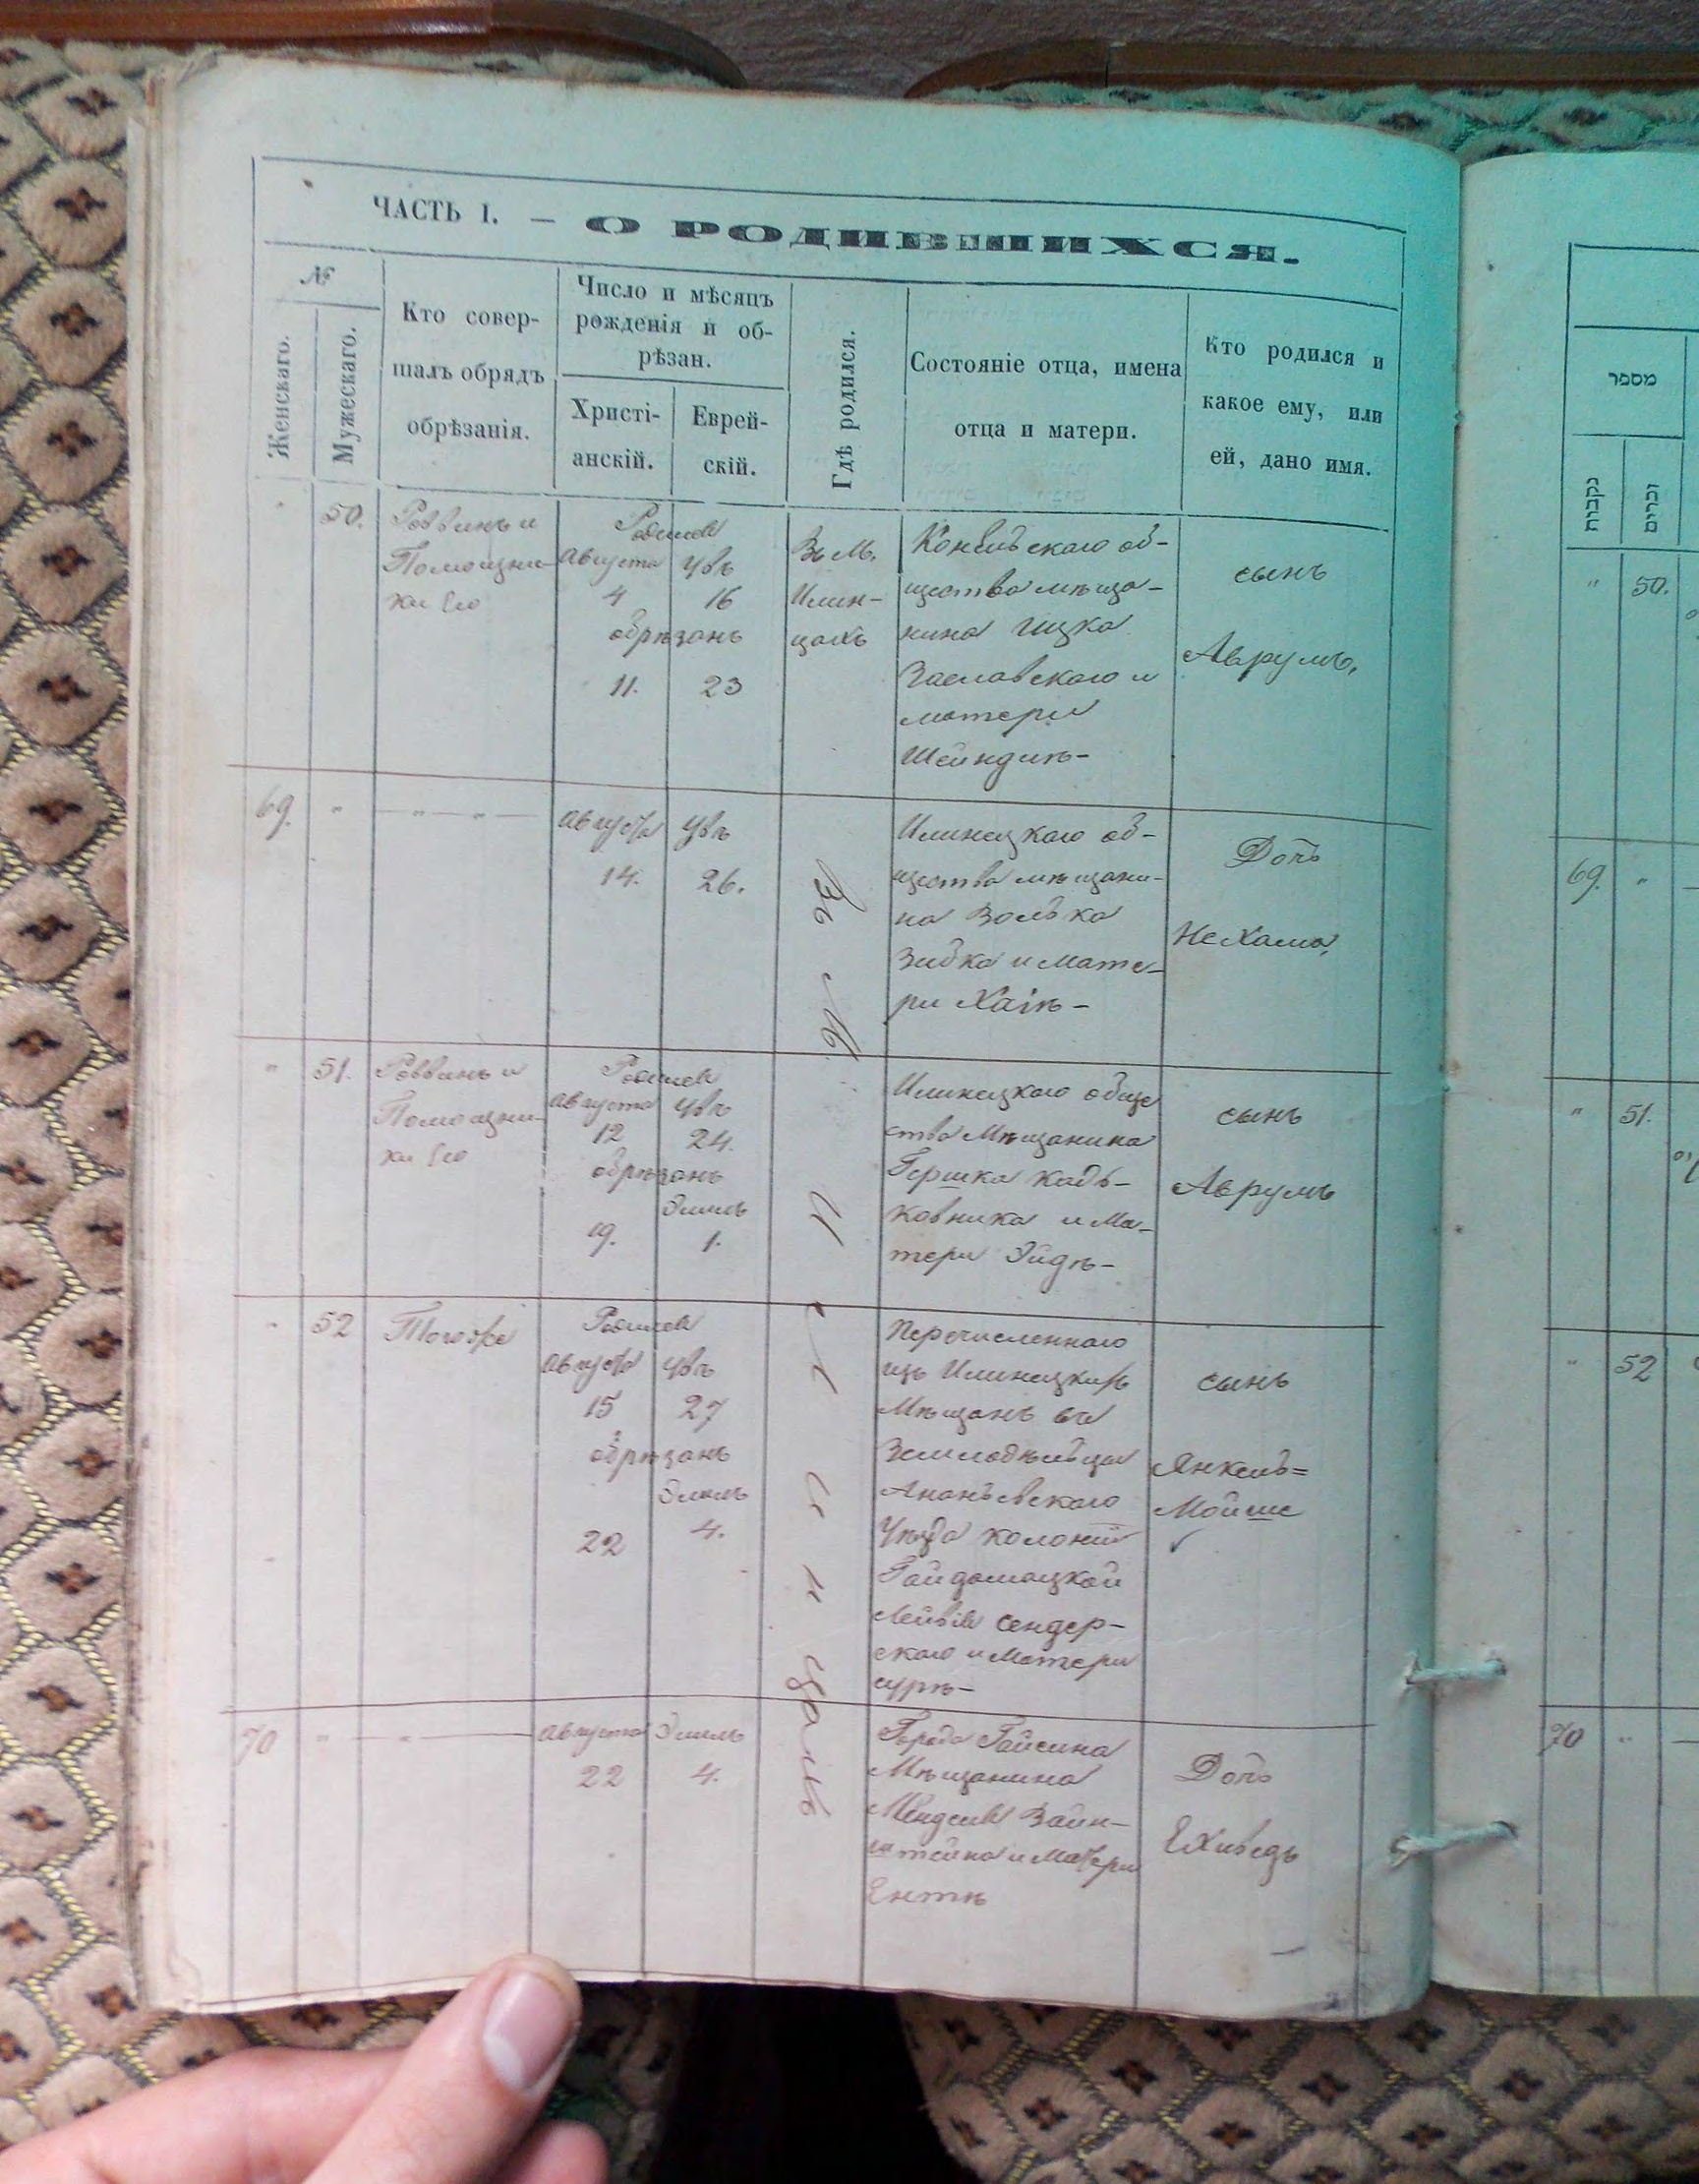 ЧАСТЬ I. — О РОДИВШИХСЯ.
№
Женскаго.
Мужескаго.
Кто совер-
шалъ обрядъ
обрѣзанія.
Число и мѣсяцъ
рожденія и об-
рѣзан.
Христі-
анскій.
Еврей-
скій.
Гдѣ родился.
Состояніе отца, имена
отца и матери.
Кто родился и
какое ему, или
ей, дано имя.
" 50.
Раввинъ и
Помощни-
ки Его
Родился
Августа
4
Увъ
16
обрѣзанъ
11. 23
Въ М.
Илин-
цахъ
Конелъскаго об-
щества мѣща-
нина Ицка
Заславскаго и
матери
Шейндли-
сынъ
Аврумъ,
69. " — " — " —
Августа
14.
Увъ
26.
Илинецкаго об-
щества мѣщани-
на Волька
и Мате-
ри Хаіѣ-
Дочь
Нехама,
" 51.
Раввинъ и
Помощни-
ки Его
Родился
Августа
12
Увъ
24.
обрѣзанъ
19.
Элилъ
1.
Илинецкаго обще
ства Мѣщанина
Гершка Кадь-
ковника и Ма-
тери Эйдѣ-
сынъ
Аврумъ
" 52
Тогоже
Родился
Августа
15
Увъ
27
обрѣзанъ
22
Элилъ
4.
Перечисленнаго
изъ Илинецкихъ
Мѣщанъ въ
Земледѣльцы
Ананьевскаго
Уѣзда колоніи
Гайдамацкой
Лейбы Сендер-
скаго и Матери
Сурѣ-
сынъ
Янкель=
Мойше
70 " — " —
Августа
22
Элилъ
4.
Города Гайсина
Мѣщанина
Менделя Вайн-
штейна и Матери
Ентѣ
Дочь
Ехиведъ
Въ М. Илинцахъ
מספר
נקבות
זכרים
" 50.
69. "
" 51.
" 52
70 "